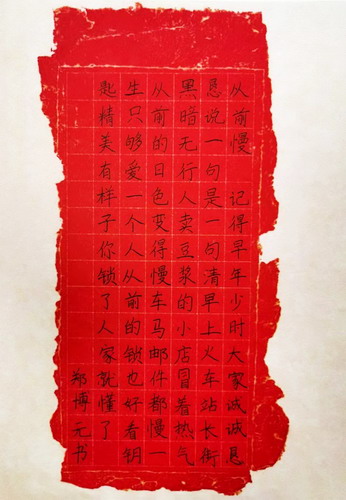 从前慢 记得早年少时大家诚诚恳
恳说一句是一句清早上火车站长街
黑暗无行人卖豆浆的小店冒着热气
从前的日色变得慢车马邮件都慢一
生只够爱一个人从前的锁也好看钥
匙精美有样子你锁了人家就懂了
郑博元书